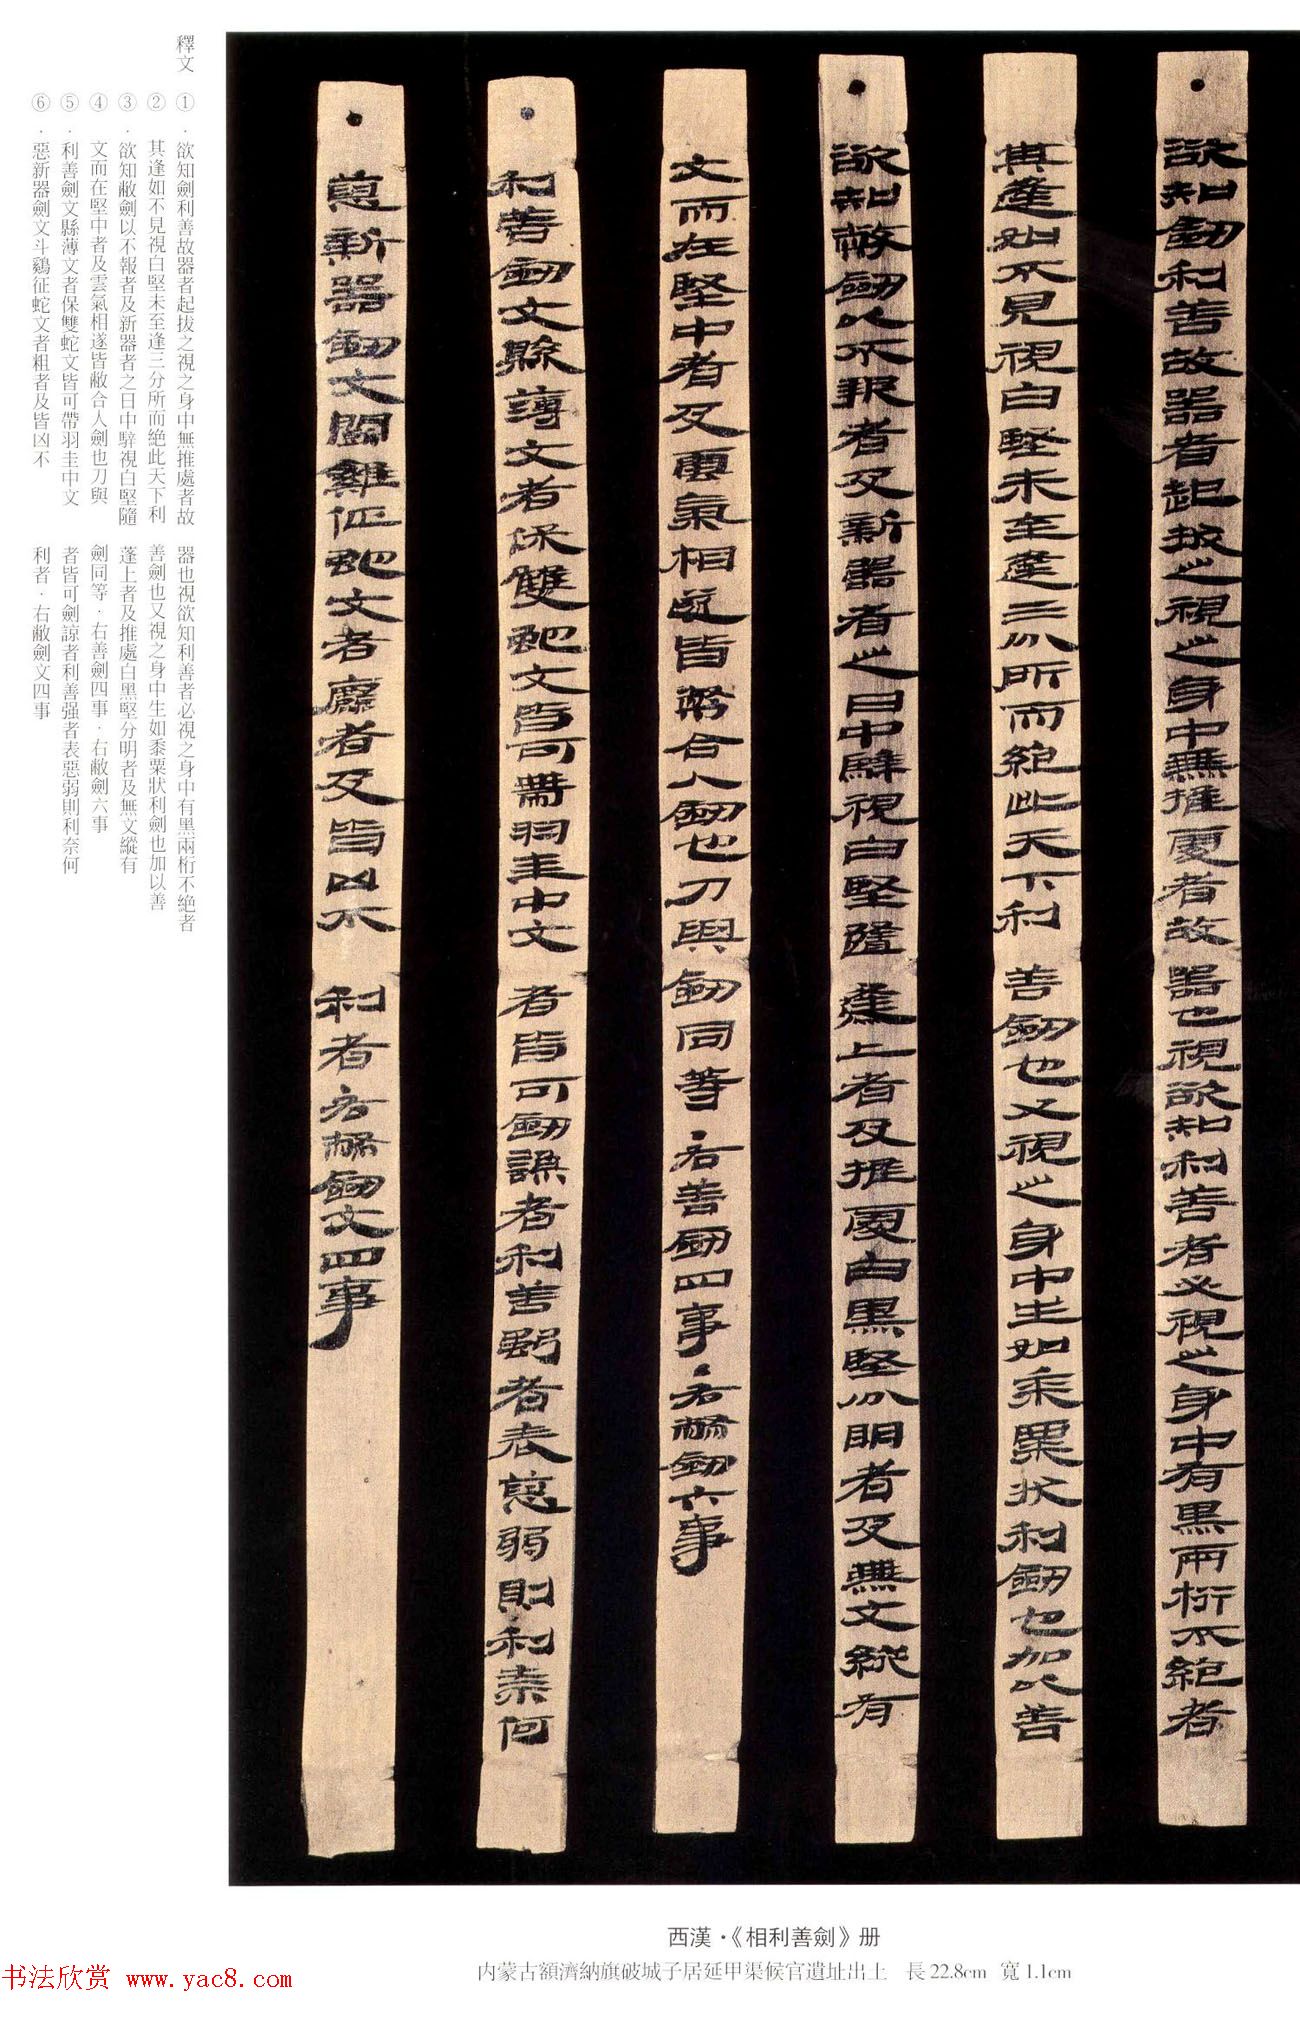 欲知劍利善故器者起拔之視之身中無推處者故器也視欲知利善者必視之身中有黑兩桁不絕者
其逢如不見視白堅未至逢三分所而絕此天下利善劍也又視之身中生如黍粟狀利劍也加以善
欲知敝劍以不報者及新器者之日中騂視白堅隨蓬上者及推處白黑堅分明者及無文縱有
文而在堅中者及雲氣相遂皆敝合人劍也刀與劍同等·右善劍四事·右敝劍六事
利善劍文縣薄文者保雙蛇文皆可帶羽圭中文者皆可劍諒者利善强者表惡弱則利奈何
惡新器劍文鬭雞征蛇文者粗者及皆凶不利者右敝劍文四事
釋文
①·欲知劍利善故器者起拔之視之身中無推處者故 器也視欲知利善者必視之身中有黑兩桁不絕者
② 其逢如不見視白堅未至逢三分所而絕此天下利 善劍也又視之身中生如黍粟狀利劍也加以善
③·欲知敝劍以不報者及新器者之日中騂視白堅隨 蓬上者及推處白黑堅分明者及無文縱有
④ 文而在堅中者及雲氣相遂皆敝合人劍也刀與 劍同等·右善劍四事·右敝劍六事
⑤·利善劍文縣薄文者保雙蛇文皆可帶羽圭中文 者皆可劍諒者利善强者表惡弱則利奈何
⑥·惡新器劍文斗鷄征蛇文者粗者及皆凶不 利者·右敝劍文四事
西漢·《相利善劍》册
内蒙古額濟納旗破城子居延甲渠候官遺址出土 長22.8cm 寬1.1cm
书法欣赏 www.yac8.com